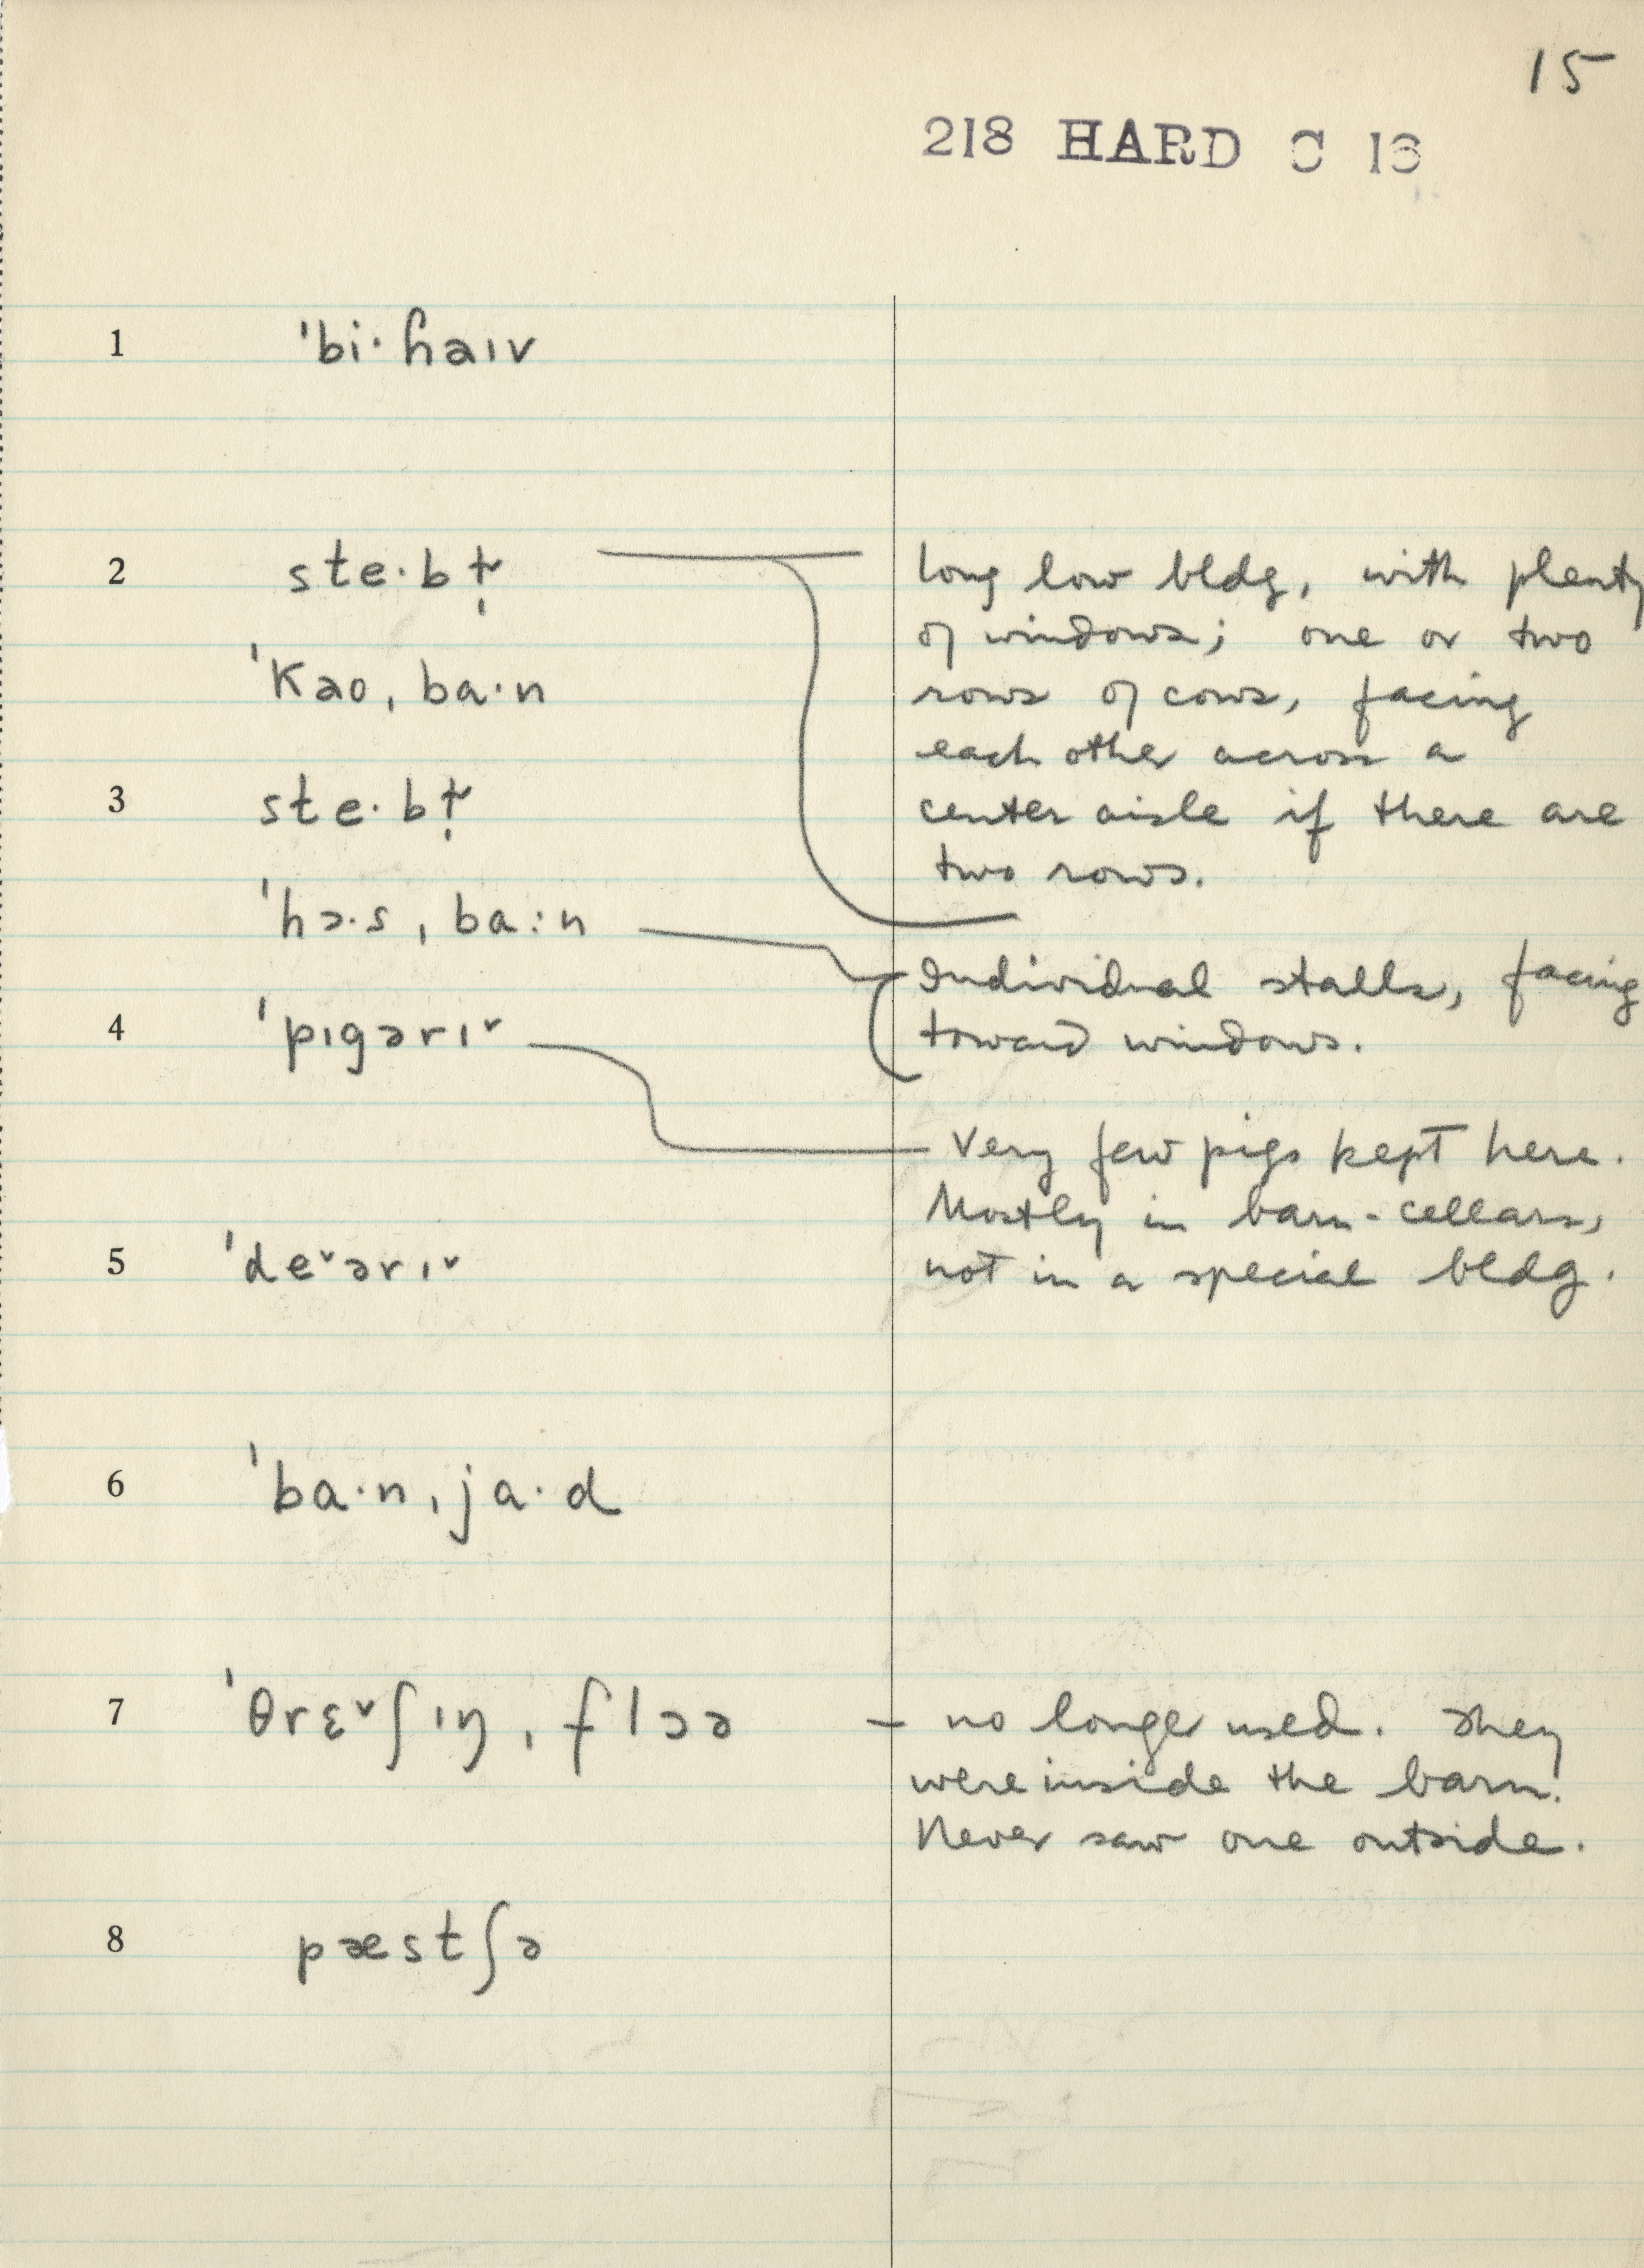 15
218 HARD C 13
1 ˈbi·ɦaɪv
2 ste·bɫ̩
long low bldg, with plenty
of windows; one or two
ˈkaoˌba·n
rows of cows, facing
each other across a
3 ste·bɫ̩
center aisle if there are
two rows.
ˈhɔ·sˌba:n
Individual stalls, facing
4 ˈpɪgərɪ˅
toward windows.
Very few pigs kept here.
Mostly in barn-cellars,
5 ˈde˅ərɪ˅
not in a special bldg.
6 ˈba·nˌja·d
7 ˈθrɛ˅ʃɪŋˌflɔə
– no longer used. They
were inside the barn.
Never saw one outside.
8 pæstʃə